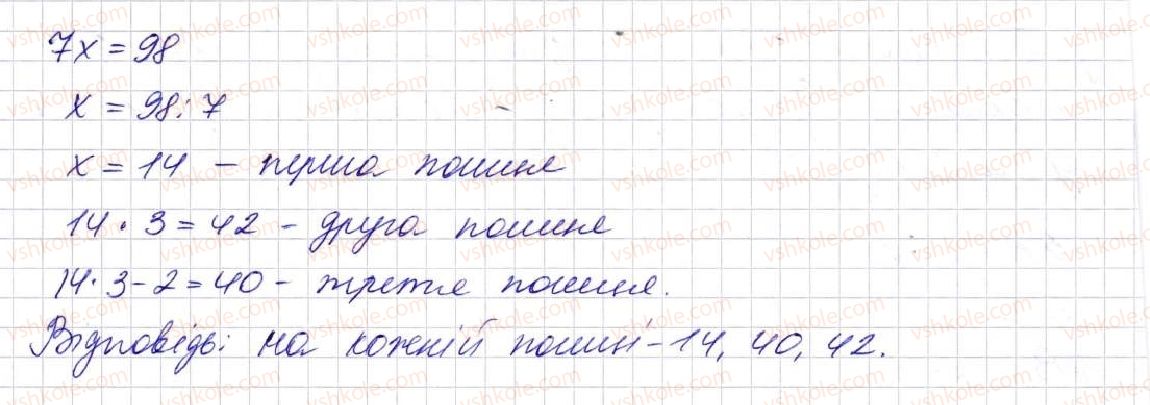 7x = 98
x = 98 : 7
x = 14 - перша полиця
14 · 3 = 42 - друга полиця
14 · 3 - 2 = 40 - третя полиця.
Відповідь: на кожній полиці - 14, 40, 42.